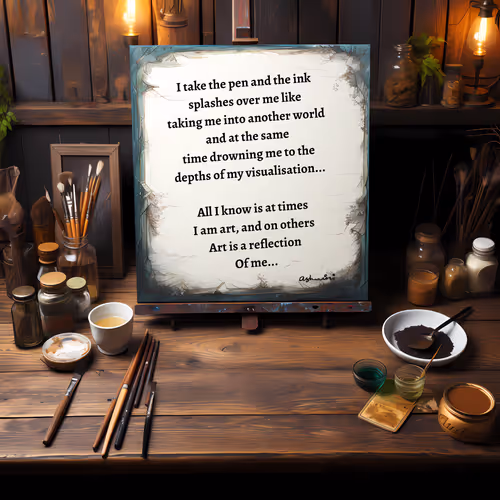 I take the pen and the ink
splashes over me like
taking me into another world
and at the same
time drowning me to the
depths of my visualisation...
All I know is at times
I am art, and on others
Art is a reflection
Of me...